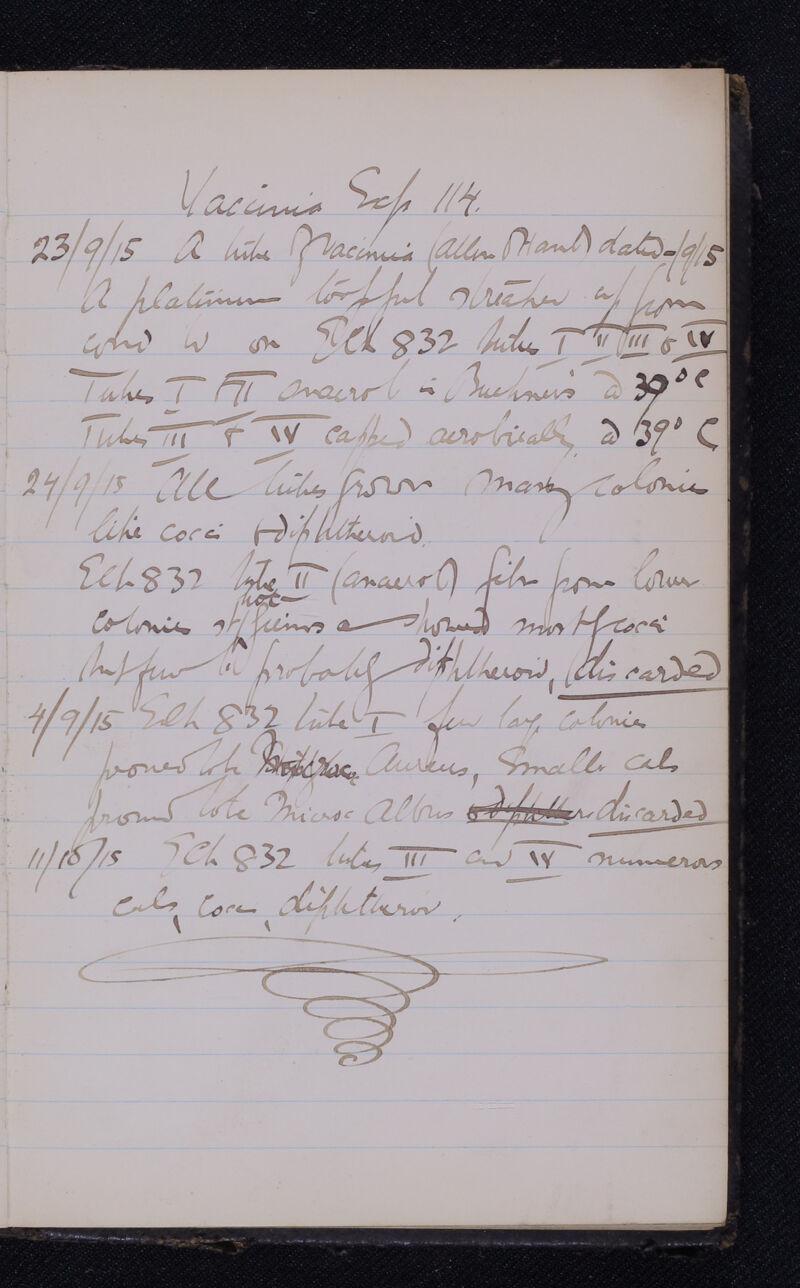 Vaccinia Exp 114.
23/9/15 A tube of Vaccinia (Allen & Hanb) dated -/9/15
A platinum loopful streaked up from
cond on Ech 832 tubes I II III & IV
Tubes I & II anaerob in Buchner's at 39° C
Tubes III & IV capped aerobically at 39° C
24/9/15 All tubes grown many colonies
like cocci & diphtheroid.
Ech 832 tube II (anaerob) film from lower
colonies showed mostly cocci
but few probably diphtheroid, discarded
4/9/15 Ech 832 tube I few large colonies
proved to be Aureus, Smaller cols
proved to be Microc Albus discarded
11/10/15 Ech 832 tubes III and IV numerous
cols, cocci, diphtheroid.